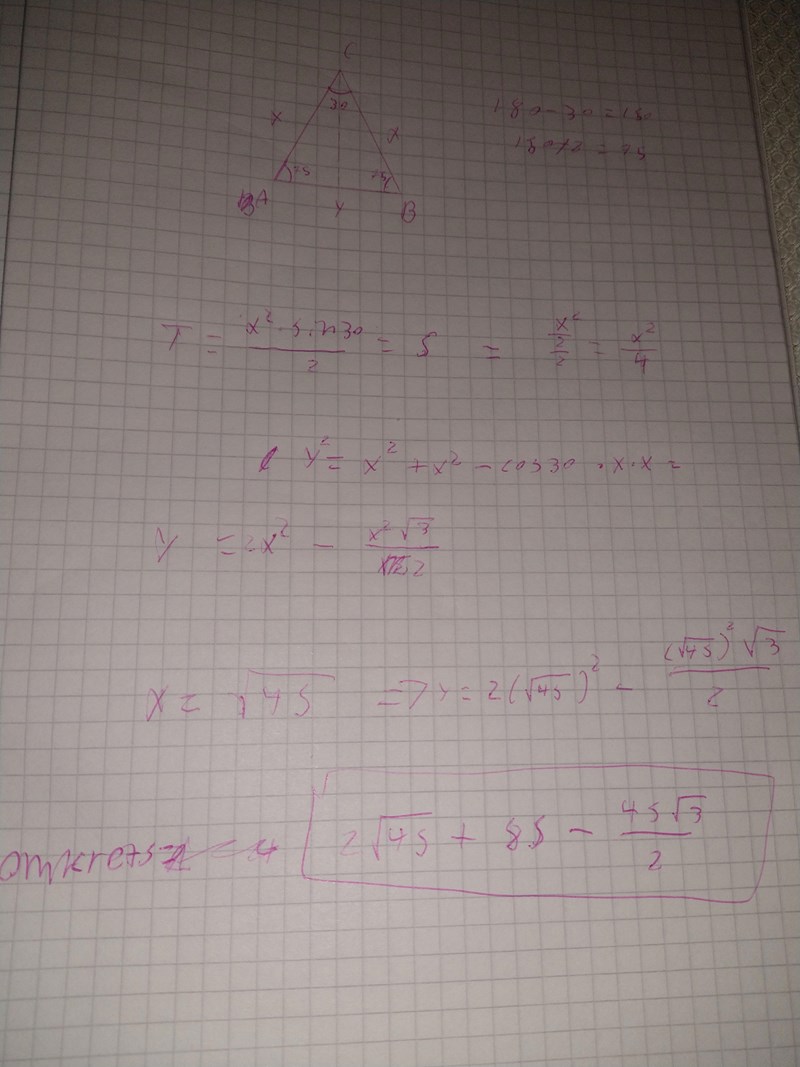 C
30
x
x
75
75
A
y
B
180-30=150
150/2=75
T = x²·sin30/2 = S = x²/2/2 = x²/4
y² = x² + x² - cos30 · x·x =
y = 2x² - x²√3/2
x = √4S => y = 2(√4S)² - (√4S)²√3/2
omkrets= 2√4S + 8S - 4S√3/2